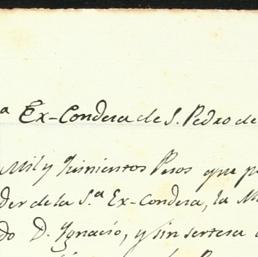 ª Ex-Condesa de S. Pedro de
Mil y Quinientos Pesos que p
der de la S.ª Ex-Condesa, la M
do D. Ignacio, y sin ser